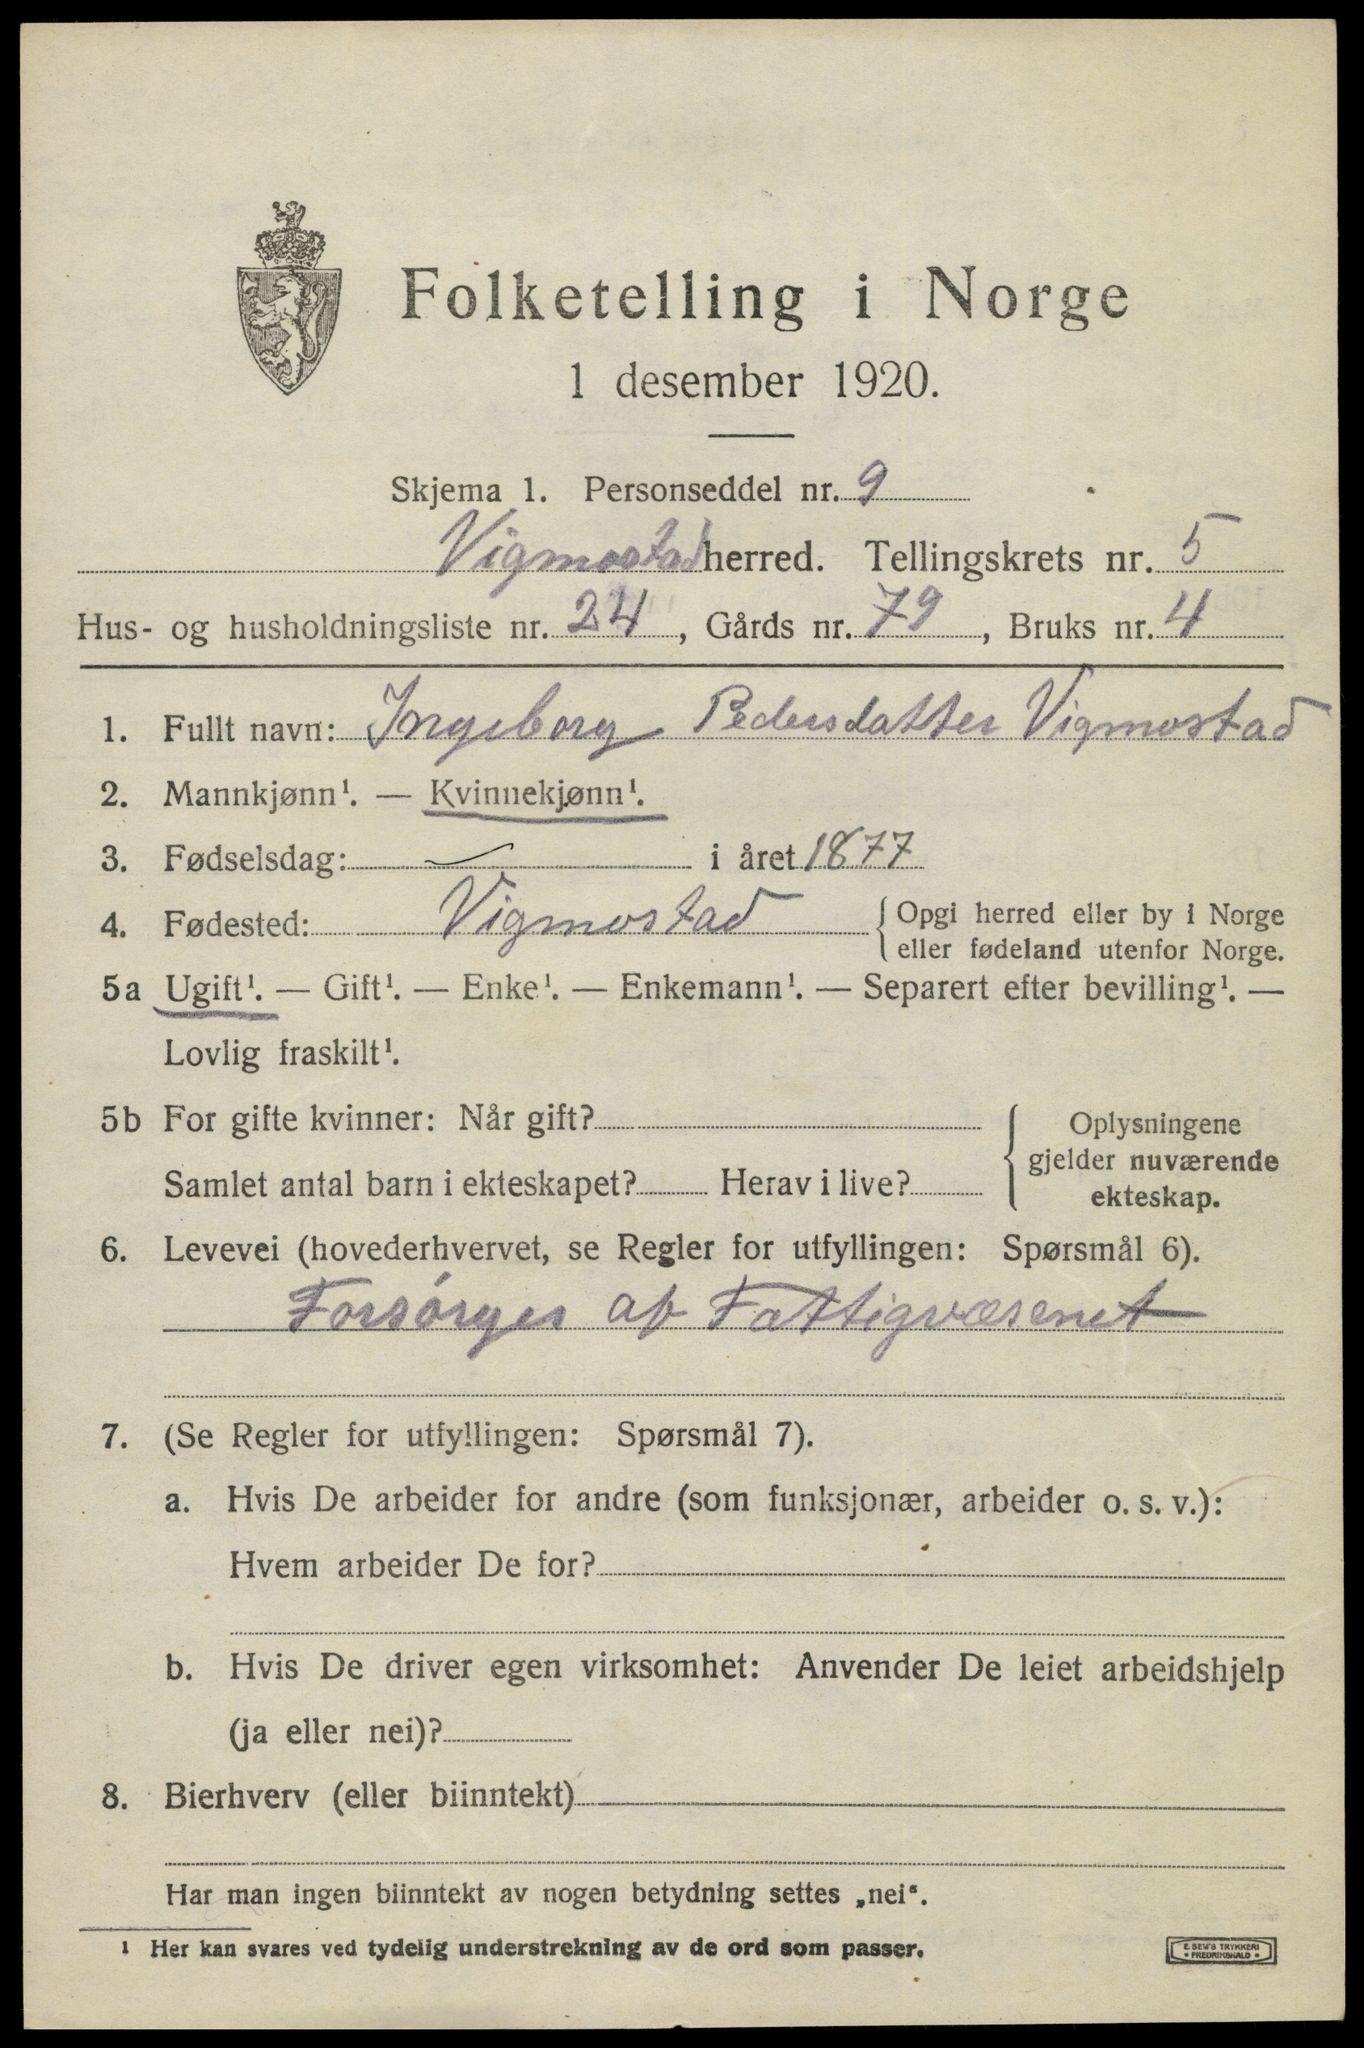 Folketelling i Norge
1 desember 1920.
Skjema 1. Personseddel nr. 9
Vigmostad herred. Tellingskrets nr. 5
Hus- og husholdningsliste nr. 24, Gårds nr. 79, Bruks nr. 4
1. Fullt navn: Ingeborg Pedersdatter Vigmostad
2. Mannkjønn¹. — Kvinnekjønn¹.
3. Fødselsdag: i året 1877
4. Fødested: Vigmostad { Opgi herred eller by i Norge
eller fødeland utenfor Norge.
5a Ugift¹. — Gift¹. — Enke¹. — Enkemann¹. — Separert efter bevilling¹. —
Lovlig fraskilt¹.
5b For gifte kvinner: Når gift?
Samlet antal barn i ekteskapet? Herav i live?
Oplysningene
gjelder nuværende
ekteskap.
6. Levevei (hovederhvervet, se Regler for utfyllingen: Spørsmål 6).
Forsørges af Fattigvæsenet
7. (Se Regler for utfyllingen: Spørsmål 7).
a. Hvis De arbeider for andre (som funksjonær, arbeider o. s. v.):
Hvem arbeider De for?
b. Hvis De driver egen virksomhet: Anvender De leiet arbeidshjelp
(ja eller nei)?
8. Bierhverv (eller biinntekt)
Har man ingen biinntekt av nogen betydning settes „nei“.
¹ Her kan svares ved tydelig understrekning av de ord som passer.
E. SEM'S TRYKKERI
• FREDRIKSHALD •